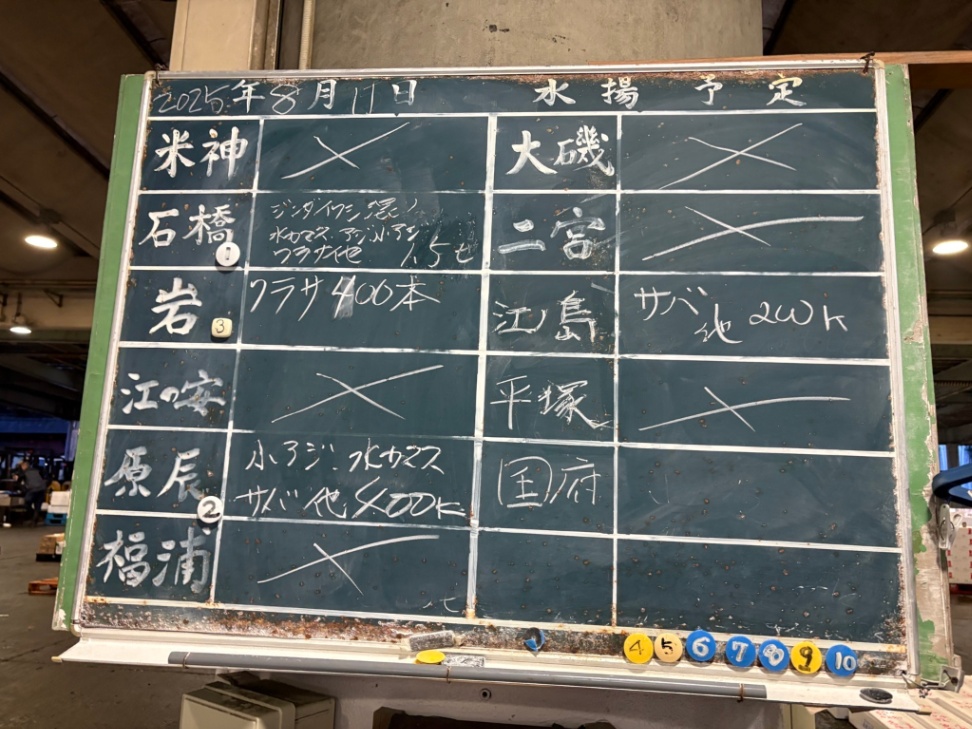 2025年8月17日 水揚予定
米神 ×
大磯 ×
石橋 ①
ジンダ イワシ 混り
水カマス アジ 小アジ
ワラサ他 1.5t
二宮 ×
岩 ③
ワラサ 400本
江ノ島
サバ
他 200K
江の安 ×
平塚 ×
原辰 ②
小アジ 水カマス
サバ 他 400K
国府
福浦 ×
4 5 6 7 8 9 10